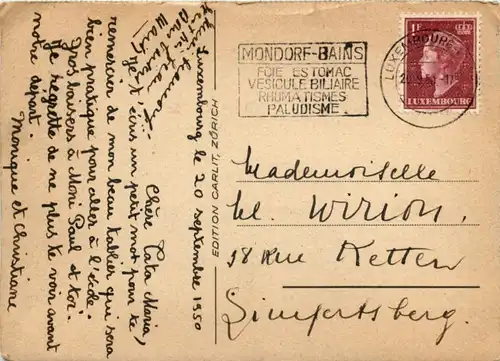 Luxembourg le 20 septembre 1950
Chère Tata Maria,
Je t'écris un petit mot pour te
remercier de mon beau tablier qui sera
bien pratique pour aller à l'école.
Gros baisers à Moni Paul et toi.
Je regrette de ne plus te voir avant
notre départ.
Monique et Christiane
EDITION CARLIT, ZÜRICH
MONDORF-BAINS
FOIE ESTOMAC
VESICULE BILIAIRE
RHUMATISMES
PALUDISME
LUXEMBOURG
1F
LUXEMBOURG
Mademoiselle
M. Wirion,
58 Rue Ketten
Limpertsberg.